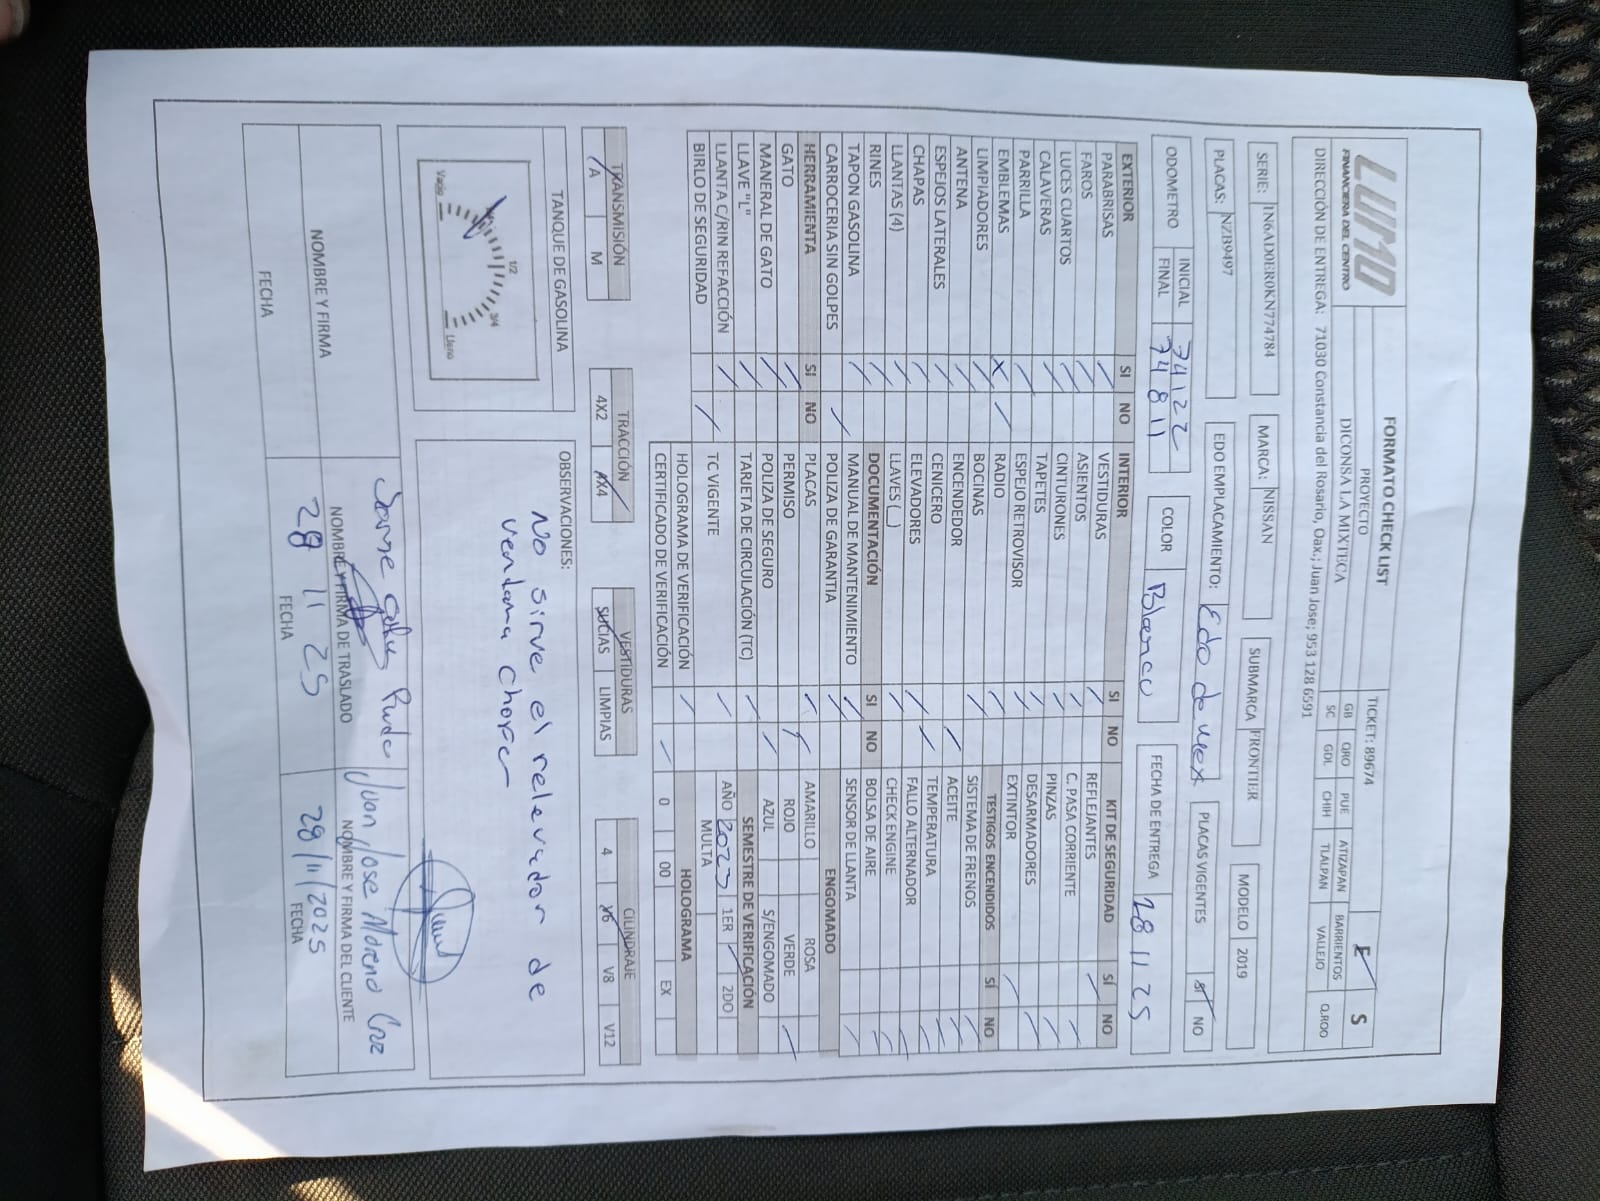 LUMO
FINANCIERA DEL CENTRO
FORMATO CHECK LIST
PROYECTO
DICONSA LA MIXTECA
TICKET: 89674
E S
GB QRO PUE ATIZAPAN BARRIENTOS Q.ROO
SC GDL CHIH TLALPAN VALLEJO
DIRECCIÓN DE ENTREGA: 71030 Constancia del Rosario, Oax.; Juan Jose; 953 128 6591
SERIE: 1N6AD0ER0KN774784 MARCA: NISSAN SUBMARCA FRONTIER MODELO 2019
PLACAS: NZB9497 EDO EMPLACAMIENTO: Edo de mex PLACAS VIGENTES SI NO
ODOMETRO INICIAL 74122 COLOR Blanco FECHA DE ENTREGA 28 11 25
FINAL 74811
EXTERIOR SI NO
PARABRISAS
FAROS
LUCES CUARTOS
CALAVERAS
PARRILLA
EMBLEMAS X
LIMPIADORES
ANTENA
ESPEJOS LATERALES
CHAPAS
LLANTAS (4)
RINES
TAPON GASOLINA
CARROCERIA SIN GOLPES
HERRAMIENTA SI NO
GATO
MANERAL DE GATO
LLAVE "L"
LLANTA C/RIN REFACCIÓN
BIRLO DE SEGURIDAD
INTERIOR SI NO
VESTIDURAS
ASIENTOS
CINTURONES
TAPETES
ESPEJO RETROVISOR
RADIO
BOCINAS
ENCENDEDOR
CENICERO
ELEVADORES
LLAVES (__)
DOCUMENTACIÓN SI NO
MANUAL DE MANTENIMIENTO
POLIZA DE GARANTIA
PLACAS
PERMISO
POLIZA DE SEGURO
TARJETA DE CIRCULACIÓN (TC)
TC VIGENTE
HOLOGRAMA DE VERIFICACIÓN
CERTIFICADO DE VERIFICACIÓN
KIT DE SEGURIDAD SÍ NO
REFLEJANTES
C. PASA CORRIENTE
PINZAS
DESARMADORES
EXTINTOR
TESTIGOS ENCENDIDOS SÍ NO
SISTEMA DE FRENOS
ACEITE
TEMPERATURA
FALLO ALTERNADOR
CHECK ENGINE
BOLSA DE AIRE
SENSOR DE LLANTA
ENGOMADO
AMARILLO ROSA
ROJO VERDE
AZUL S/ENGOMADO
SEMESTRE DE VERIFICACIÓN
AÑO 2023 1ER 2DO
MULTA
HOLOGRAMA
0 00 EX
TRANSMISIÓN TRACCIÓN VESTIDURAS CILINDRAJE
A M 4X2 4X4 SUCIAS LIMPIAS 4 V6 V8 V12
TANQUE DE GASOLINA
Vacio 1/2 3/4 Lleno
OBSERVACIONES:
No sirve el relevador de
ventana chofer
Juan Jose Moreno Cruz
NOMBRE Y FIRMA NOMBRE Y FIRMA DE TRASLADO NOMBRE Y FIRMA DEL CLIENTE
28 11 25 28/11/2025
FECHA FECHA FECHA